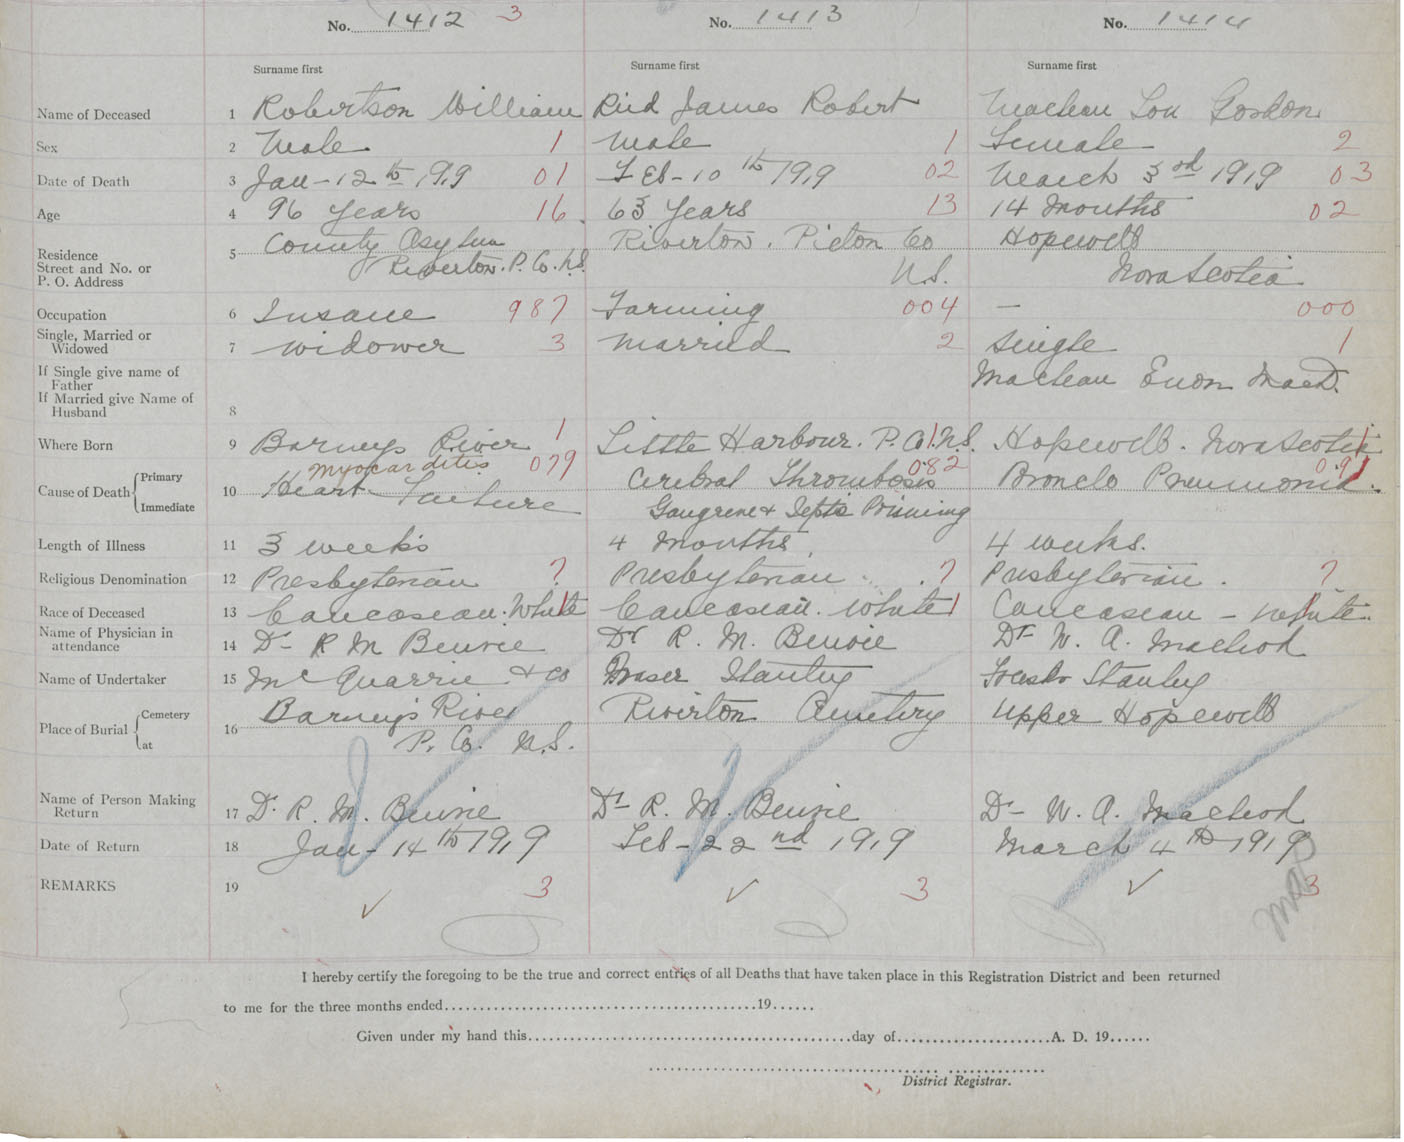 No. 1412 3 No. 1413 No. 1414
Surname first Surname first Surname first
Name of Deceased 1 Robertson William Reid James Robert MacLean Lou Gordon
Sex 2 Male 1 Male 1 Female 2
Date of Death 3 Jan - 12th 1919 01 Feb - 10th 1919 02 March 3rd 1919 03
Age 4 96 years 16 63 Years 13 14 Months 02
Residence 5 County Asylum Riverton. Pictou Co Hopewell
Street and No. or Riverton. P. Co. N.S. N.S. Nova Scotia
P. O. Address
Occupation 6 Insane 987 Farming 004 — 000
Single, Married or
Widowed 7 Widower 3 Married 2 Single 1
If Single give name of MacLean MacD.
Father
If Married give Name of
Husband 8
Where Born 9 Barneys River 1 Little Harbour. P. Co. 1 N.S. Hopewell. Nova Scotia 1
Myocarditis 079 082 091
Cause of Death Primary Immediate 10 Heart Failure Cerebral Thrombosis Broncho Pneumonia.
Gangrene & Septic Poisining
Length of Illness 11 3 weeks 4 Months 4 weeks.
Religious Denomination 12 Presbyterian 7 Presbyterian 7 Presbyterian. 7
Race of Deceased 13 Caucasean. White 1 Caucasean. White 1 Caucasean - White 1
Name of Physician in
attendance 14 Dr R M Benvie Dr R. M. Benvie Dr W. A. MacLeod
Name of Undertaker 15 Mc Quarrie & Co Fraser Stanley Stanley
Place of Burial Cemetery at 16 Barney's River Riverton Cemetery Upper Hopewell
P. Co. N.S.
Name of Person Making
Return 17 Dr. R. M. Benvie Dr R. M. Benvie Dr W. A. MacLeod
Date of Return 18 Jan - 14th 1919 Feb - 22nd 1919 March 4th 1919
REMARKS 19 3 3 3
I hereby certify the foregoing to be the true and correct entries of all Deaths that have taken place in this Registration District and been returned
to me for the three months ended 19
Given under my hand this day of A. D. 19
District Registrar.